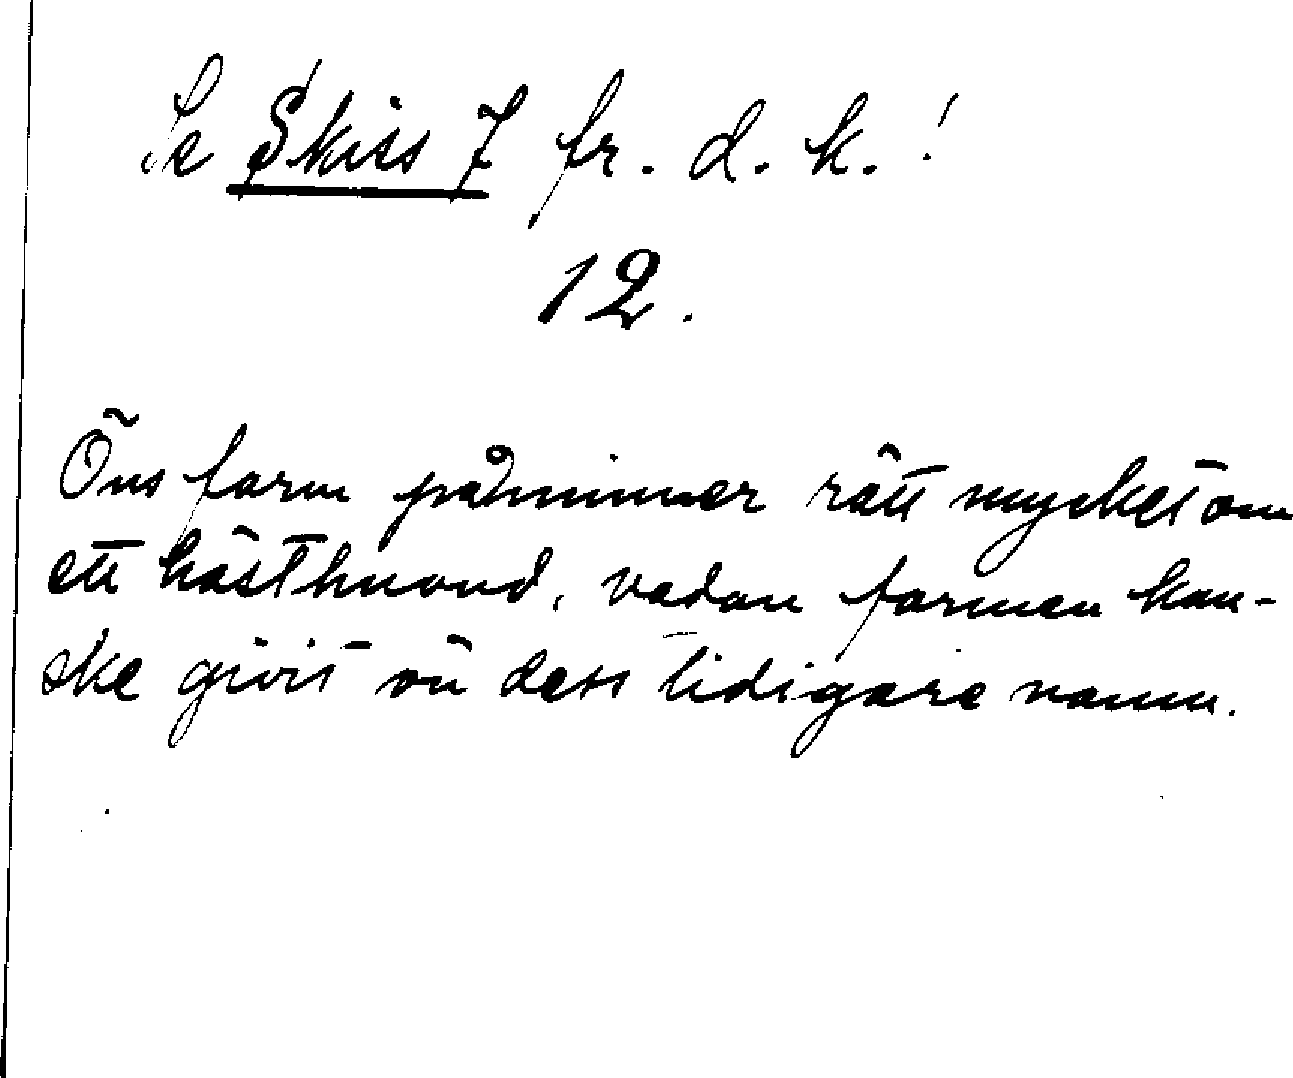 Se Skiss 7 fr. d. k. !
12.
Öns form påminner rätt mycket om
ett hästhuvud, vadan formen kan-
ske givit ön dess tidigare namn.